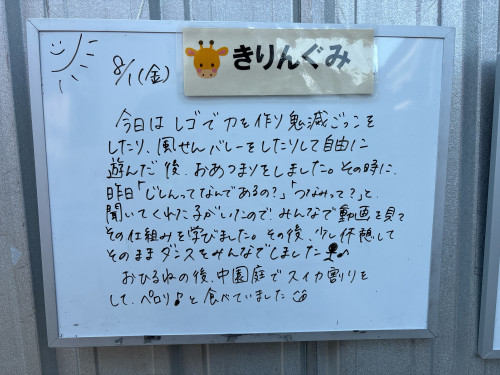 きりんぐみ
8/1(金)
今日はレゴで刀を作り鬼滅ごっこを
したり、風せんバレーをしたりして自由に
遊んだ後、おあつまりをしました。その時に、
昨日「じしんってなんであるの?」「つなみって?」と、
聞いてくれた子がいたので、みんなで動画を見て
その仕組みを学びました。その後、少し休憩して
そのままダンスをみんなでしました♪
おひるねの後、中園庭でスイカ割りを
して、ペロリ♪と食べていました